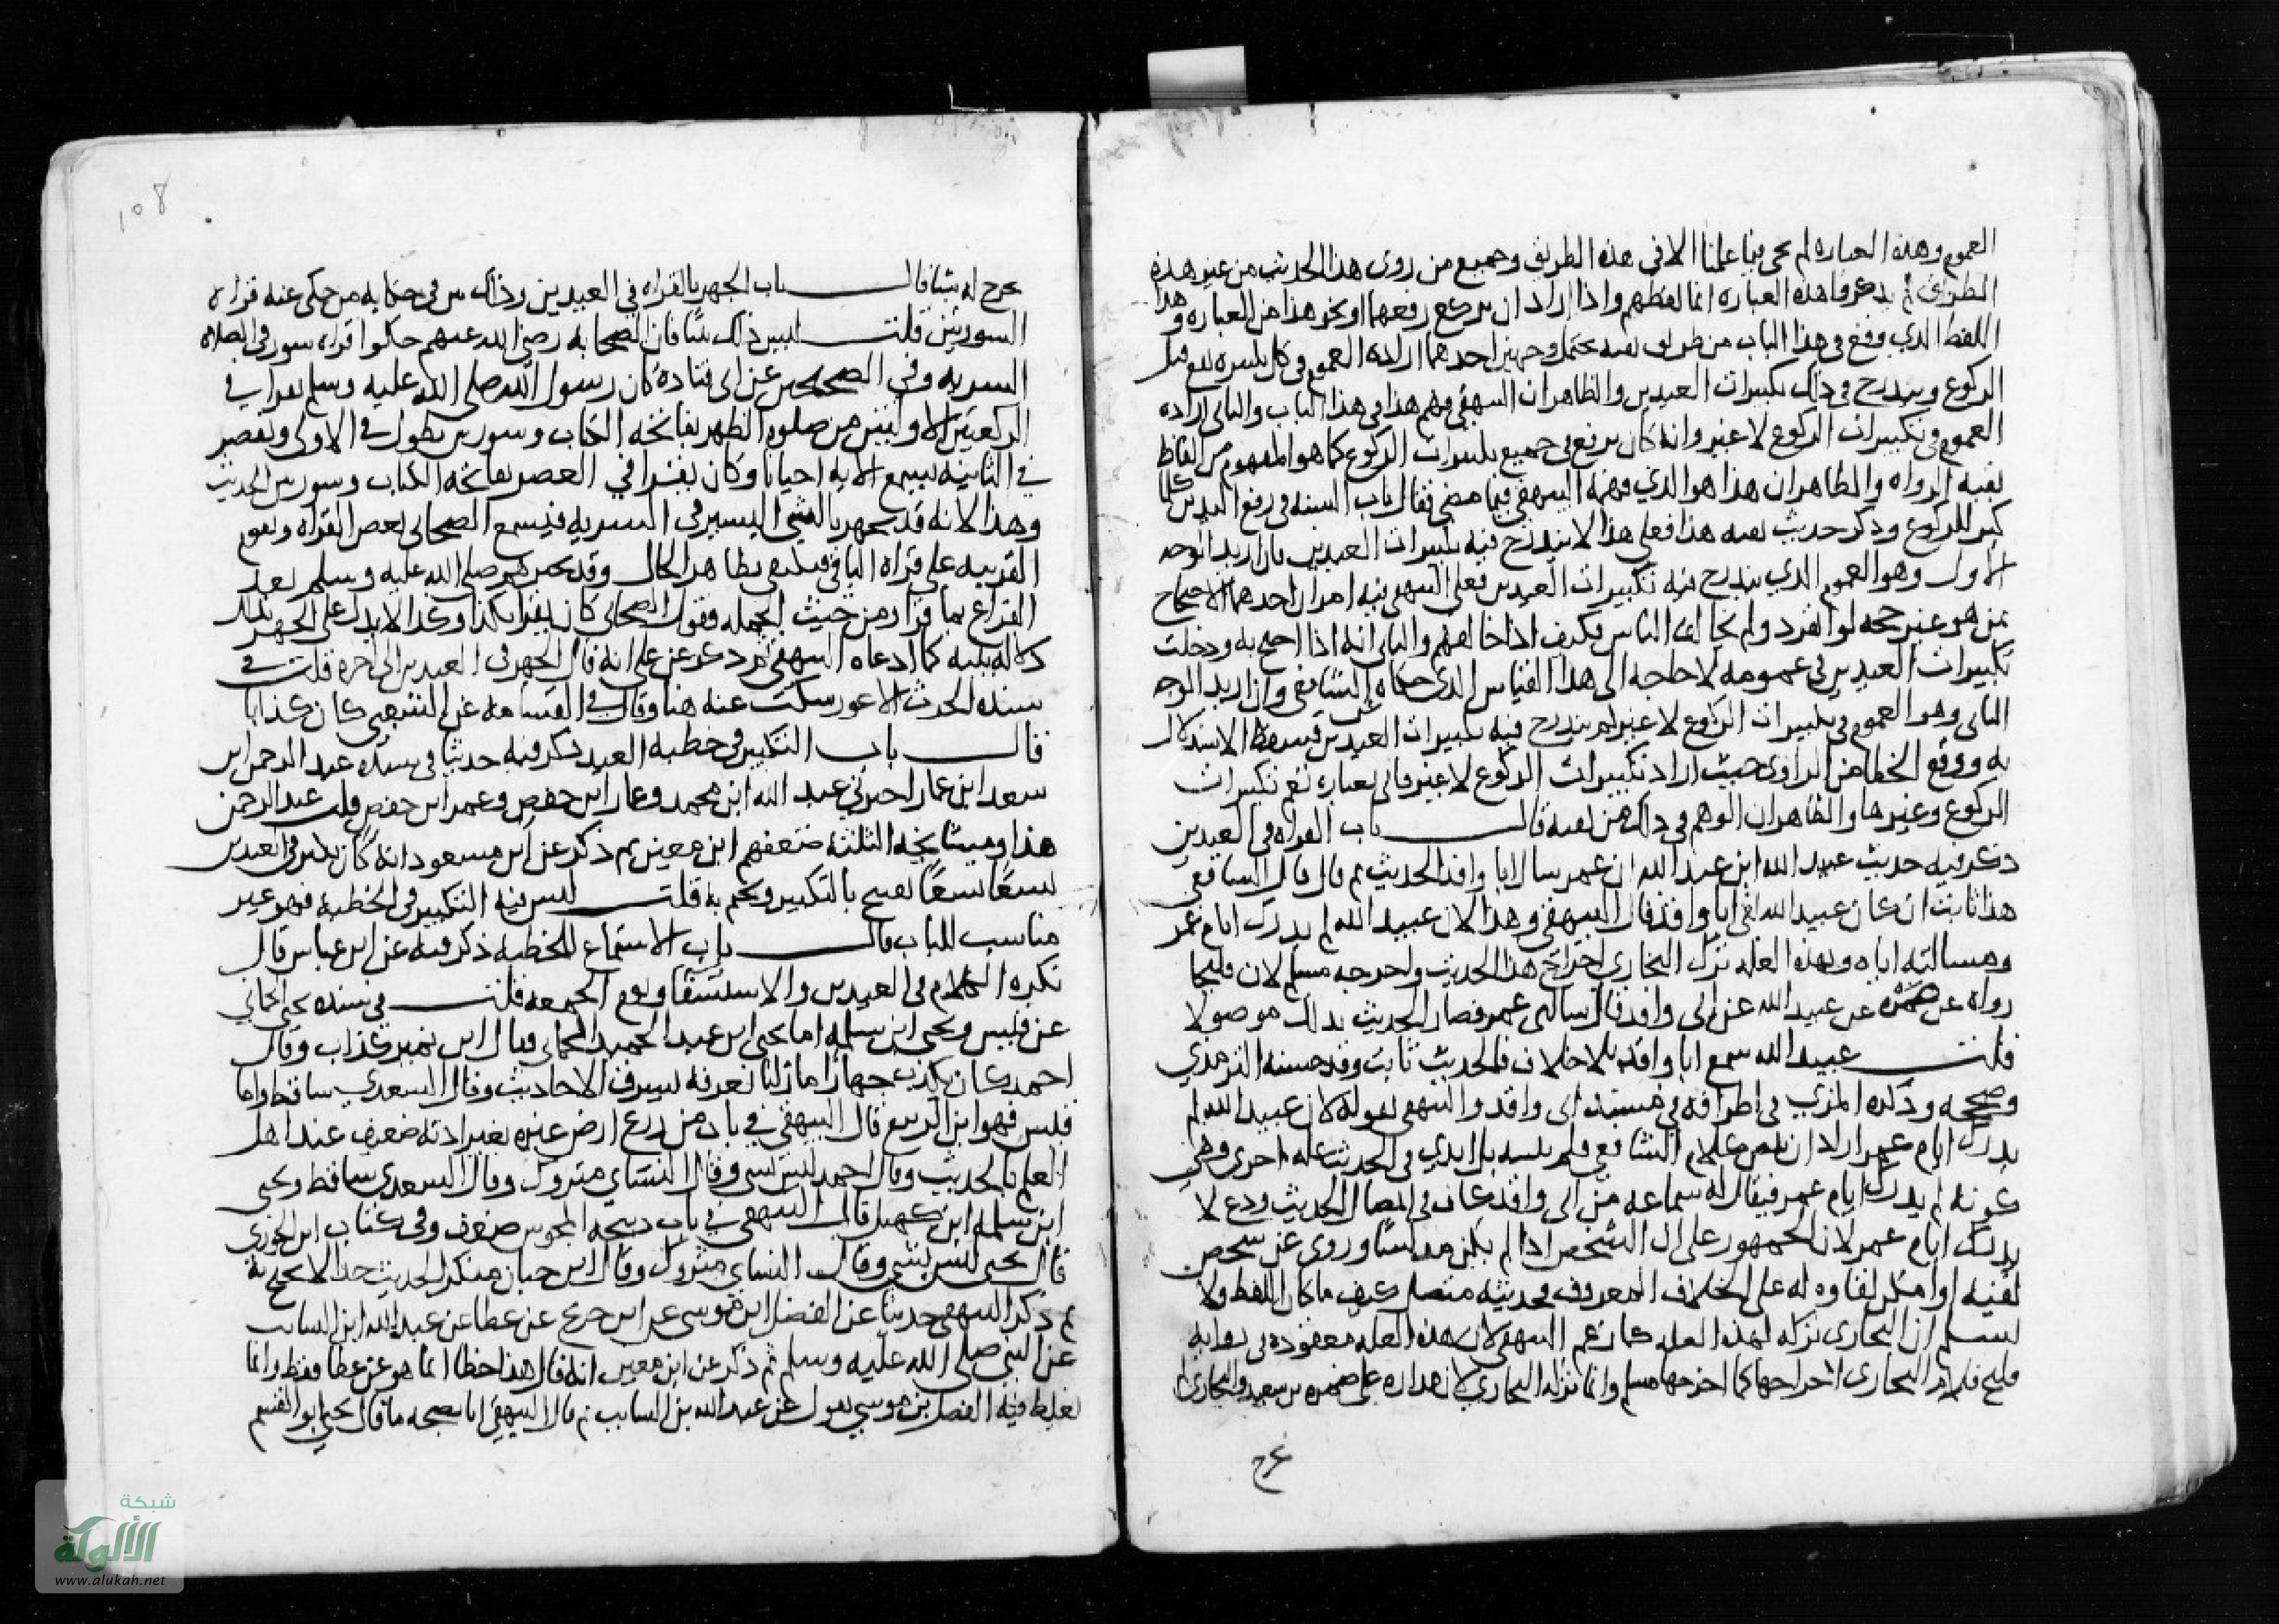 العموم وهذه العباره لم تجى فيما علمنا الا فى هذه الطريق وجميع من روى هذا الحديث من غير هذه
الطريق لم يذكروا هذه العباره انما لفظهم واذا اراد ان يركع رفعهما او نحو هذا من العباره وهذا
اللفظ الذي وقع في هذا الباب من طريق بقيه يحتمل وجهين احدهما اراده العموم في كل تكبيره تقع قبل
الركوع ويندرج في ذلك تكبيرات العيدين والظاهر ان البيهقي فهم هذا في هذا الباب والثاني اراده
العموم في تكبيرات الركوع لا غير وانه كان يرفع في جميع تكبيرات الركوع كما هو المفهوم من الفاظ
بقيه الرواه والظاهر ان هذا هو الذي فهمه البيهقي فيما مضى فقال باب السنه في رفع اليدين كلما
كبر للركوع وذكر حديث بقيه هذا فعلى هذا لا يندرج فيه تكبيرات العيدين فان اريد الوجه
الاول وهو العموم الذي يندرج فيه تكبيرات العيدين فعلى البيهقي فيه امران احدهما الاحتجاج
بمن هو غير حجه لو انفرد ولم يخالف الناس فكيف اذا خالفهم والثاني انه اذا احتج به ودخلت
تكبيرات العيدين في عمومه لا حاجه الى هذا القياس الذي حكاه عن الشافعي وان اريد الوجه
الثاني وهو العموم في تكبيرات الركوع لا غير لم يندرج فيه تكبيرات العيدين فسقط الاستدلال
به ووقع الخطا من الراوي حيث اراد تكبيرات الركوع لا غير فاتى بعباره تعم تكبيرات
الركوع وغيرها والظاهر ان الوهم في ذلك من بقيه قال باب القراه في العيدين
ذكر فيه حديث عبيد الله ابن عبد الله ان عمر سال ابا واقد الحديث ثم قال قال الشافعي
هذا ثابت ان كان عبيد الله لقي ابا واقد قال البيهقي وهذا لان عبيد الله لم يدرك ايام عمر
ومسالته اياه وبهذه العله ترك البخاري اخراج هذا الحديث واخرجه مسلم لان فليحا
رواه عن ضمره عن عبيد الله عن ابي واقد قال سالني عمر فصار الحديث بذلك موصولا
قلت عبيد الله سمع ابا واقد بلا خلاف فالحديث ثابت وقد حسنه الترمذي
وصححه وذكره المزي في اطرافه في مسند ابي واقد والبيهقي بقوله لان عبيد الله لم
يدرك ايام عمر اراد ان يتمم كلام الشافعي فلم يتممه بل ابدي في الحديث عله اخرى وهي
كونه لم يدرك ايام عمر فيقال له سماعه من ابي واقد كاف في اتصال الحديث ودع لا
يدرك ايام عمر لان الجمهور على ان الشخص اذا لم يكن مدلسا وروى عن شخص
لقيه او امكن لقاوه له على الخلاف المعروف فحديثه متصل كيف ما كان اللفظ ولا
نسلم ان البخاري تركه لهذه العله كما زعم البيهقي لان هذه العله مفقوده في روايه
فليح فلزم البخاري اخراجها كما اخرجها مسلم وانما تركه البخاري لان مداره على ضمره بن سعيد والبخاري لم
يخرج
١٠٨
يخرج له شيئا قال باب الجهر بالقراه في العيدين وذلك بين في حكايه من حكى عنه قراه
السورتين قلت ليس ذلك بينا فان الصحابه رضي الله عنهم حكوا قراه سور في الصلاه
السريه وفي الصحيحين عن ابي قتاده كان رسول الله صلى الله عليه وسلم يقرا في
الركعتين الاوليين من صلوه الظهر بفاتحه الكتاب وسورتين يطول في الاولى ويقصر
في الثانيه يسمع الايه احيانا وكان يقرا في العصر بفاتحه الكتاب وسورتين الحديث
وهذا لانه قد يجهر بالشي اليسير في السريه فيسمع الصحابي بعض القراه وتقوم
القرينه على قراه الباقي فيكتفي بظاهر الحال وقد يخبرهم صلى الله عليه وسلم بعد
الفراغ بما قراه من حيث الجمله فقول الصحابي كان يقرا بكذا وكذا لا يدل على الجهر بتلك
دلاله بينه كما ادعاه البيهقي ثم ذكر عن علي انه قال الجهر في العيدين الى اخره قلت في
سنده الحرث الاعور سكت عنه هنا وقال في القسامه عن الشعبي كان كذابا
قال باب التكبير في خطبه العيد ذكر فيه حديثا في سنده عبد الرحمن ابن
سعد ابن عمار اخبرني عبد الله ابن محمد وعمار ابن حفص وعمر ابن حفص قلت عبد الرحمن
هذا ومشايخه الثلثه ضعفهم ابن معين ثم ذكر عن ابن مسعود انه كان يكبر في العيدين
تسعا تسعا يفتتح بالتكبير ويختم به قلت ليس فيه التكبير في الخطبه فهو غير
مناسب للباب قال باب الاستماع للخطبه ذكر فيه عن ابن عباس قال
نكره الكلام في العيدين والاستسقا ويوم الجمعه قلت في سنده يحيى الحماني
عن قيس ويحيى ابن سلمه اما يحيى ابن عبد الحميد الحماني فقال ابن نمير كذاب وقال
احمد كان يكذب جهارا ما زلنا نعرفه يسرق الاحاديث وقال السعدي ساقط واما
قيس فهو ابن الربيع قال البيهقي في باب من زرع ارض غيره بغير اذنه ضعيف عند اهل
العلم بالحديث وقال احمد ليس بشي وقال النساي متروك وقال السعدي ساقط ويحيى
ابن سلمه ابن كهيل قال البيهقي في باب ذبيحه المجوس ضعيف وفي كتاب ابن الجوزي
قال يحيى ليس بشي وقال النساي متروك وقال ابن حبان منكر الحديث جدا لا يحتج به
ثم ذكر البيهقي حديثا عن الفضل ابن موسى عن ابن جريج عن عطا عن عبد الله ابن السايب
عن النبي صلى الله عليه وسلم ثم ذكر عن ابن معين انه قال هذا خطا انما هو عن عطا فقط وانما
يغلط فيه الفضل بن موسى يقول عن عبد الله بن السايب ثم قال البيهقي انا بصحه ما قال يحيى ابو القسم
شبكة
الألوكة
www.alukah.net